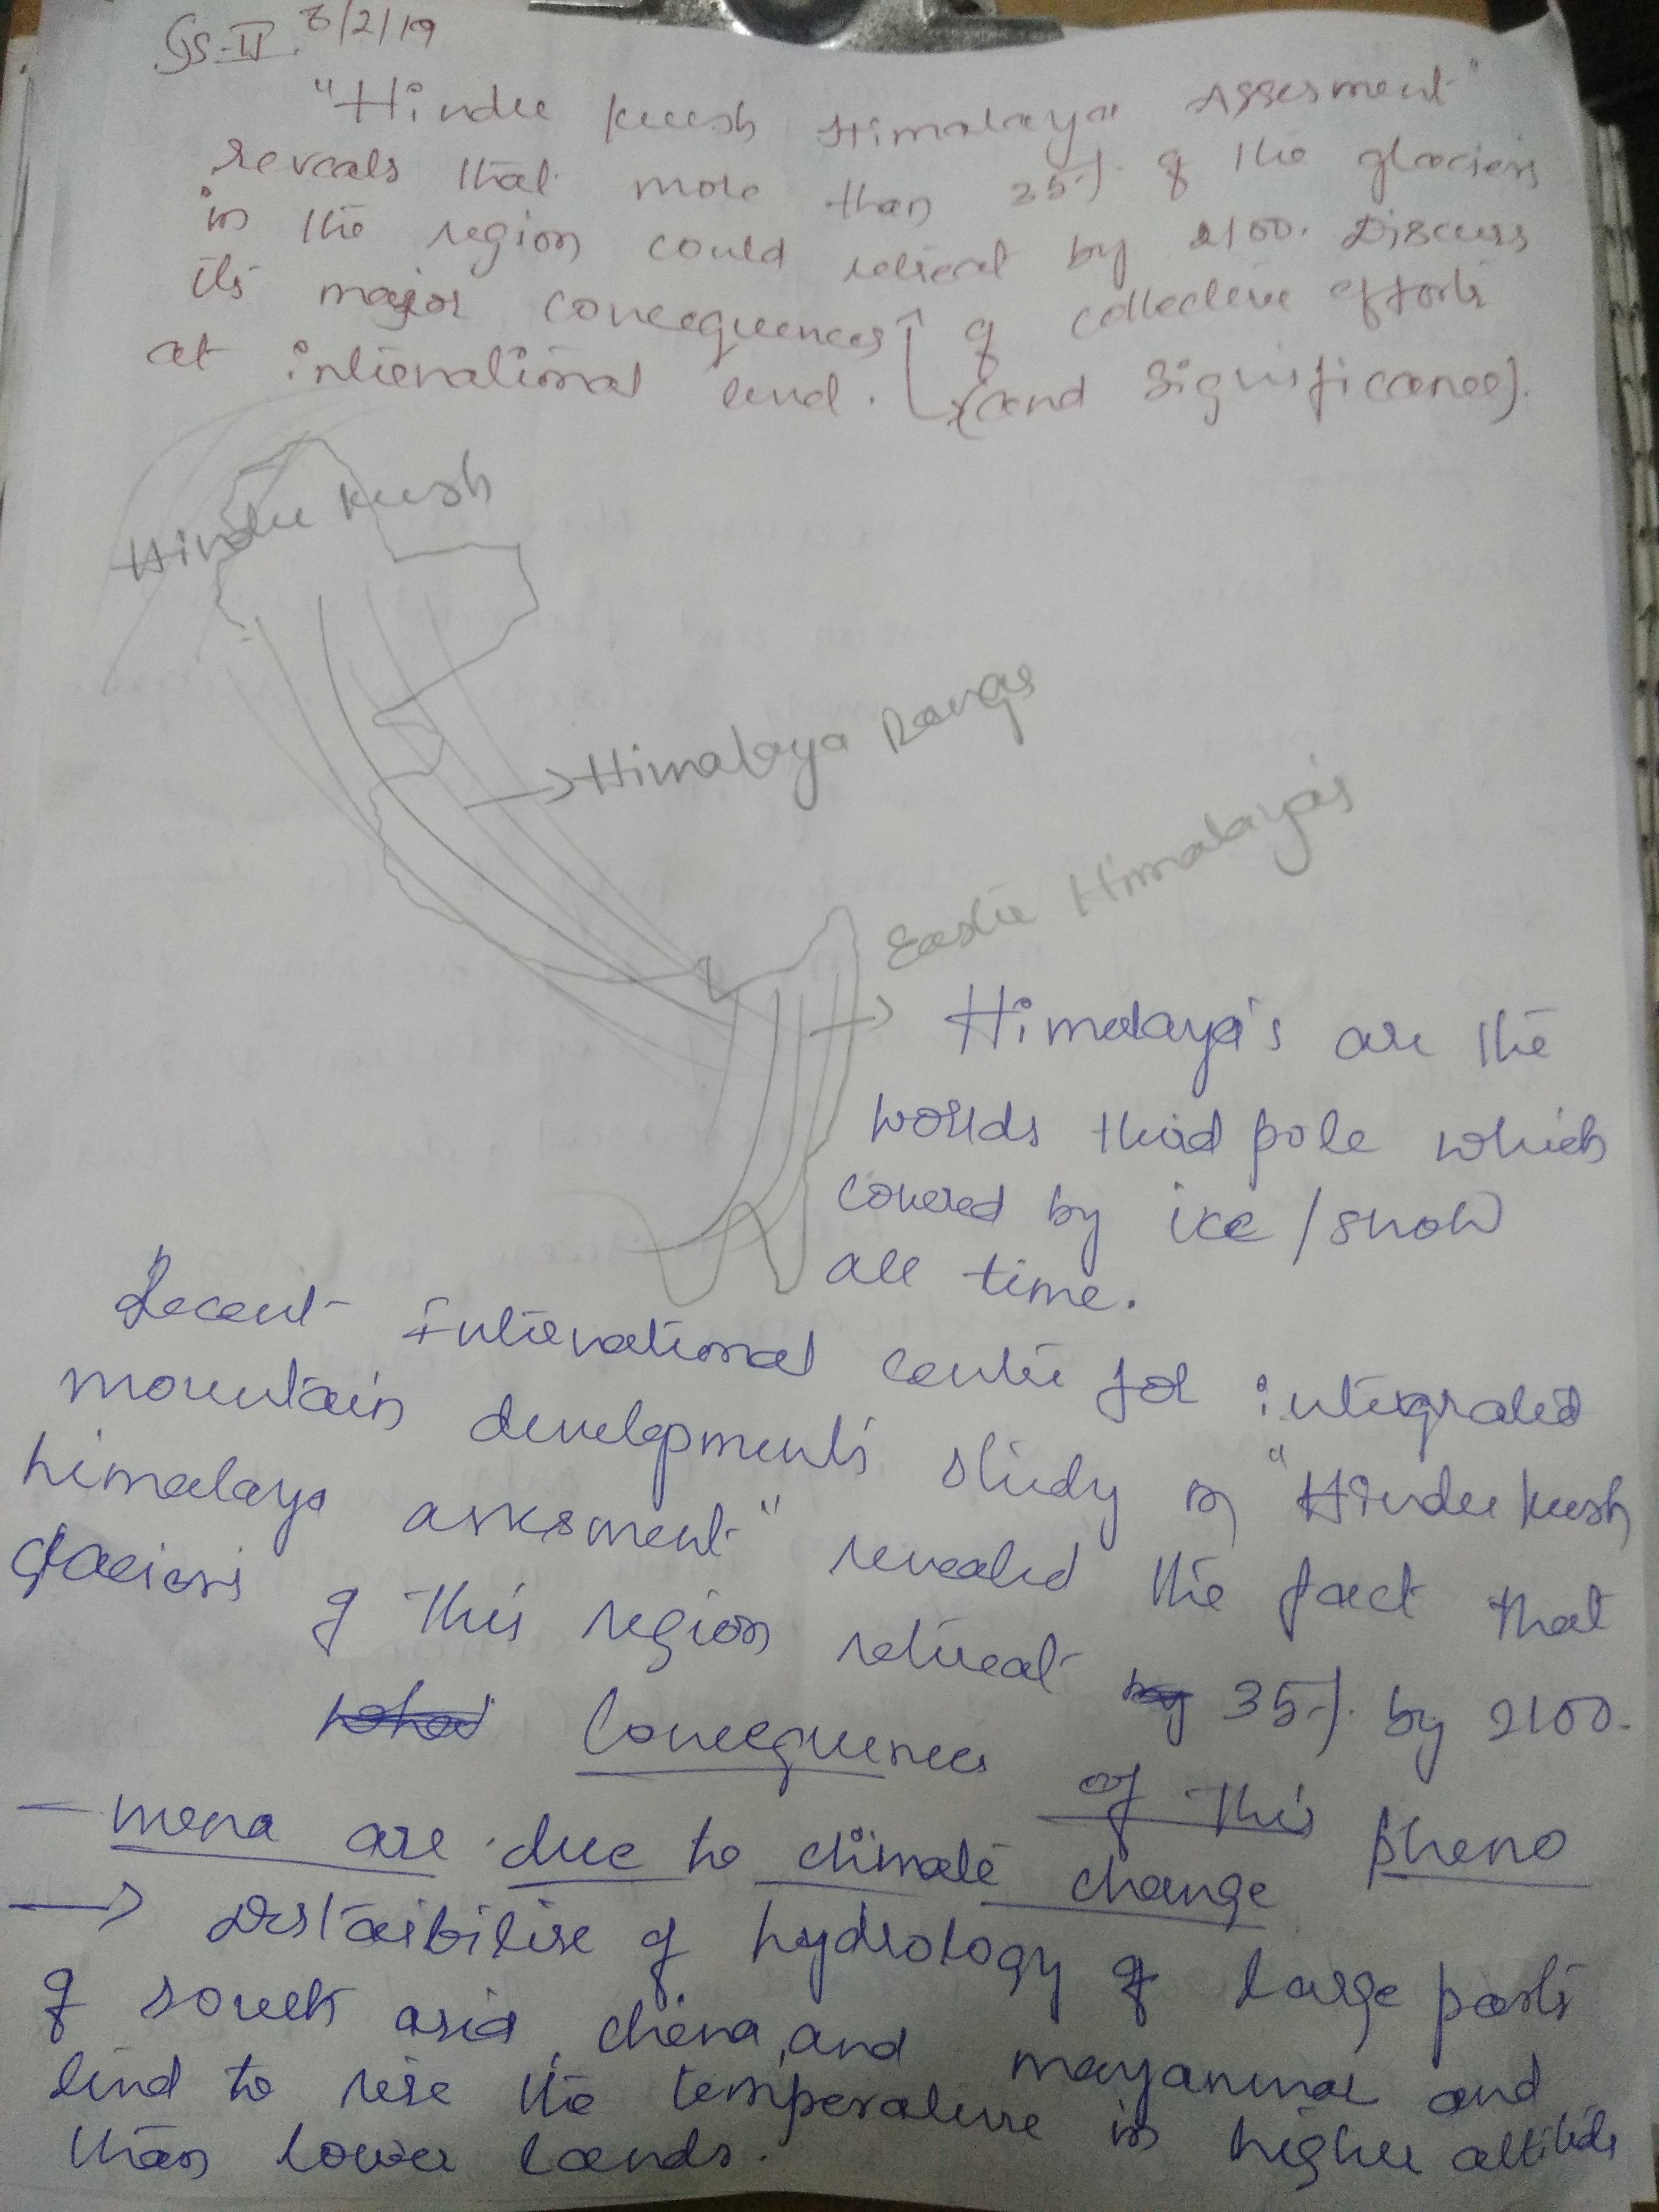 GS-II 8/2/19
"Hindu Kush Himalaya Assesment"
reveals that more than 35% of the glaciers
in the region could retreat by 2100. Discuss
its major consequences of collective efforts
at international level. (and significance).
Hindu Kush
Himalaya Rangs
Easte Himalaya's
Himalaya's are the
worlds third pole which
covered by ice/snow
all time.
Recent International centre for integrated
mountain developments study on "Hindu kush
himalaya assesment" revealed the fact that
glaciers of this region retreat 35% by 2100.
Consequences of this pheno
- mena are due to climate change
→ Distaibilise of hydrology of large parts
of south asia, china, and mayanmar and
lind to rise the temperature in higher altitide
than lower lands.